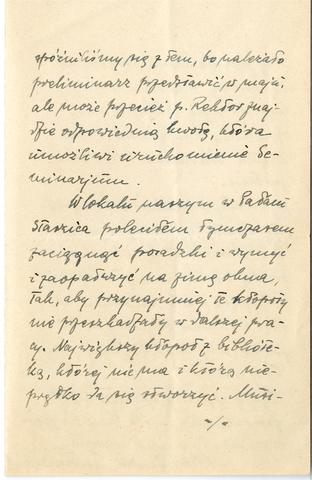 spóźniliśmy się z tem, bo należało
preliminarz przedstawić w maju,
ale może przecież p. Rektor znaj-
dzie odpowiednią kwotę, która
umożliwi uruchomienie Se-
minarjum.
W lokalu naszym w Pałacu
Staszica poleciłem tymczasem
zaciągnąć posadzki i wymyć
i zaopatrzyć na zimę okna,
tak, aby przynajmniej te kłopoty
nie przeszkadzały w dalszej pra-
cy. Największy kłopot z bibliote-
ką, której nie ma i która nie-
prędko da się stworzyć. Musi-
-/-